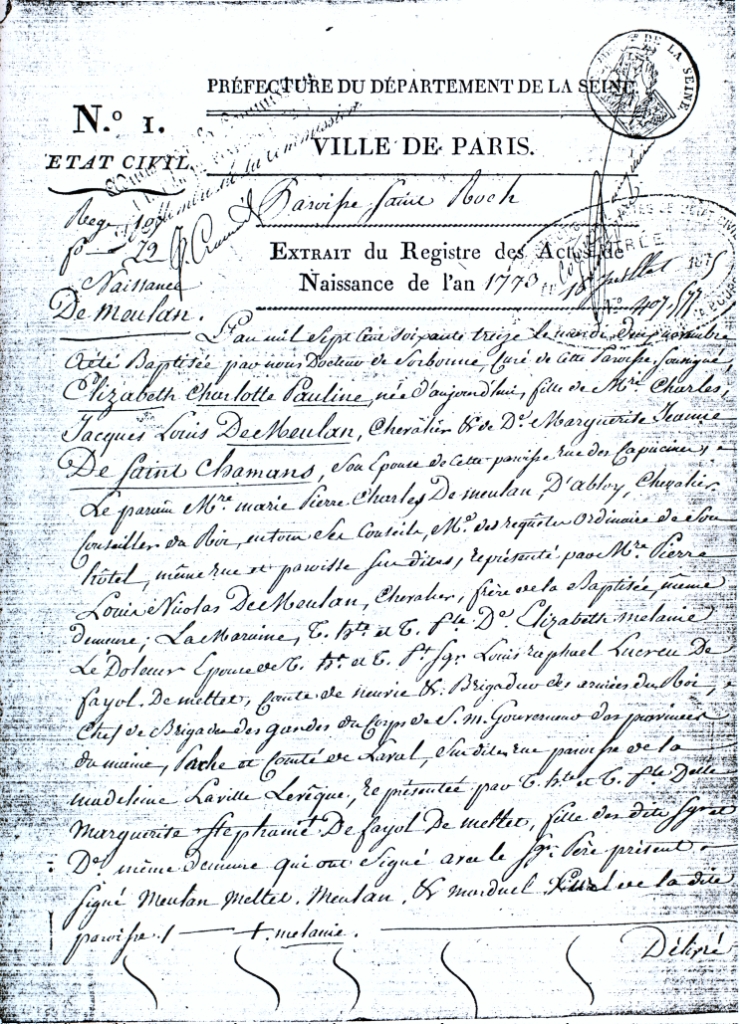 PRÉFECTURE DU DÉPARTEMENT DE LA SEINE.
N.º 1.
ETAT CIVIL
VILLE DE PARIS.
Paroisse Saint Roch
Reg
fo 22
EXTRAIT du Registre des Actes de
Naissance de l'an 1773
18 juillet 1875
Nº 407,577
Naissance
De Meulan.
L'an mil sept cent soixante treize le mardi deux novembre
a été Baptisée par nous Docteur de Sorbonne, Curé de cette Paroisse, soussigné,
Elizabeth Charlotte Pauline, née d'aujourd'hui, fille de Mre Charles,
Jacques Louis De Meulan, Chevalier & de De Marguerite Jeanne
De Saint Chamans, son Epouse de cette paroisse rue des Capucines,
Le parain Mre marie Pierre Charles De meulan, D'abloy, Chevalier
Conseiller du Roi, en tous ses Conseils, Me des requêtes Ordinaire de Son
hôtel, même rue et paroisse sus dites, représenté par Mre Pierre
Louis Nicolas De Meulan, Chevalier, frère de la Baptisée, même
demeure; La Maraine, T. hte et T. Pte De Elizabeth melanie
Le Doteur Epouse de T. ht et T. Pt Sgr Louis raphael Lucreu De
fayol De mettet, Comte de neuvic &. Brigadier des armées du Roi,
Chef de Brigade des gardes du Corps de S. m. Gouverneur des provinces
du maine, Perche et Comté de Laval, sus dites rue paroisse de la
madeleine Laville Levêque, représentée par T. hte et T. Pte Delle
Marguerite Stephanie De fayol De mettet, fille des dits Sgr et
De même demeure qui ont signé avec le Sgr Père présent
Signé Meulan Mettet. Meulan, & marduel Curé de la dite
paroisse ./. + melanie.
Délivré